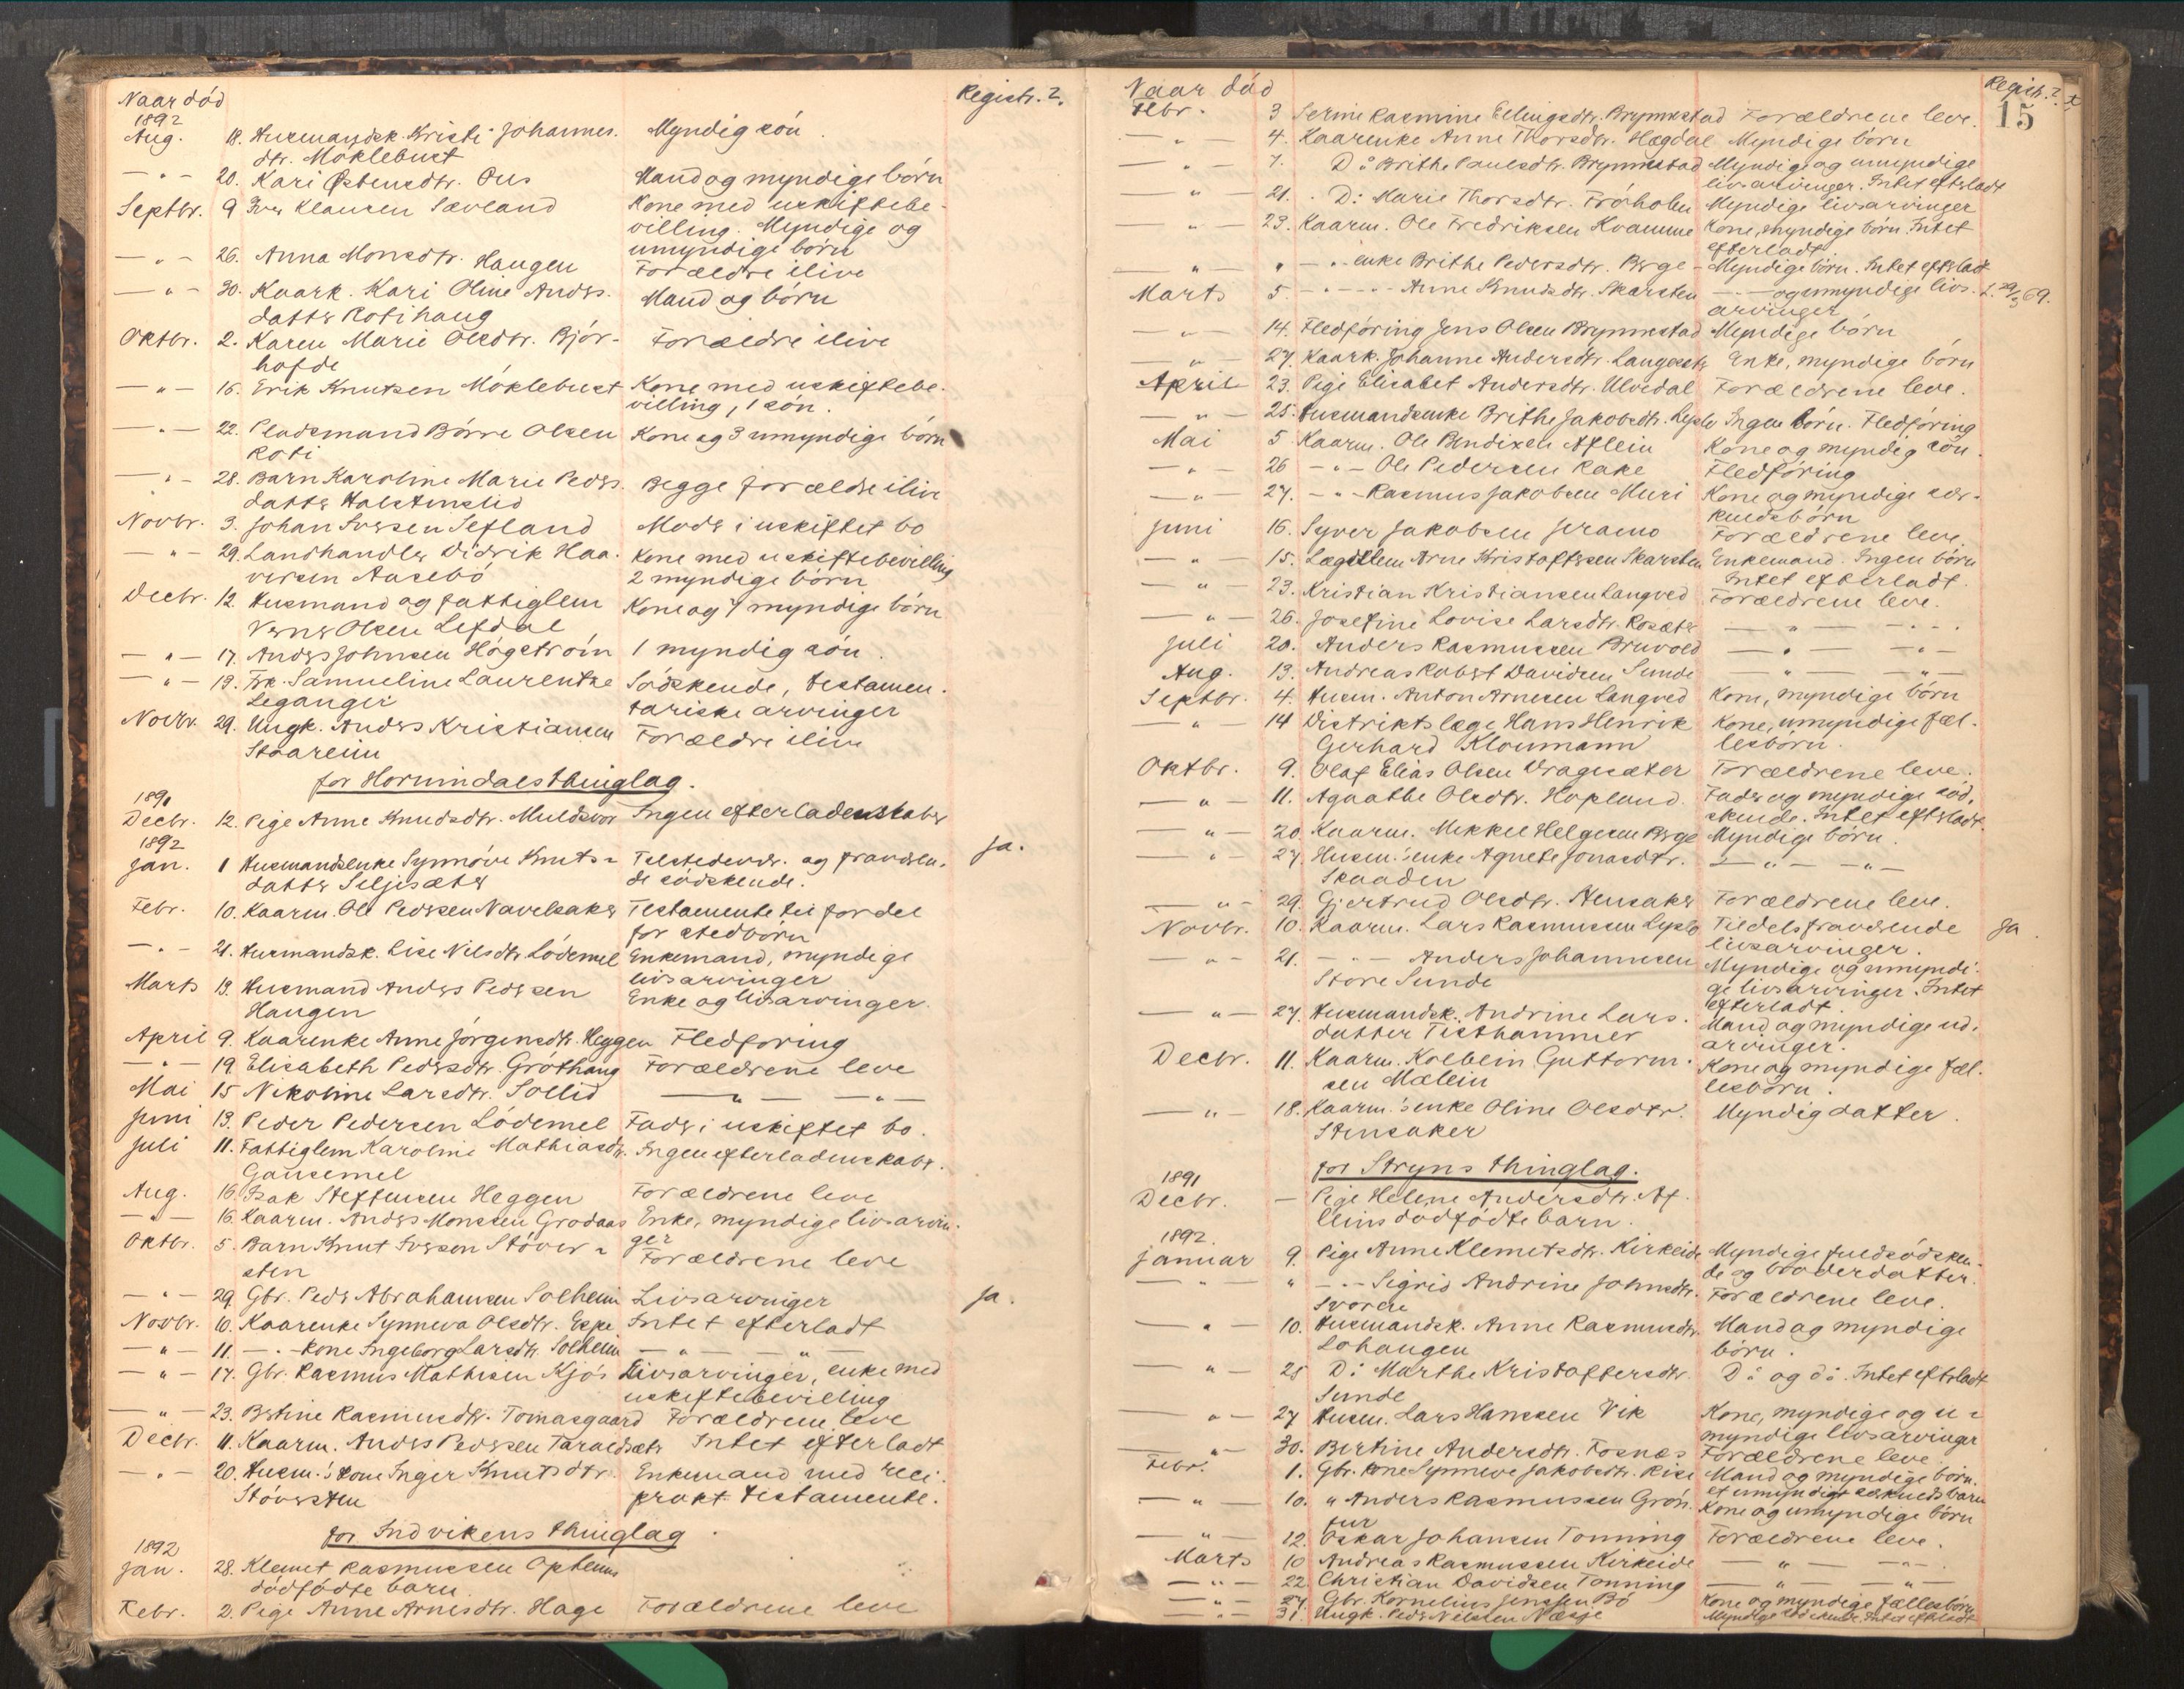 Naar död
Registr. ?
1892
Aug. 18. Husmandsk. Kristi Johannes- Myndig sön.
dtr. Möklebust
— " — 20. Kari Östensdtr. Ous Mand og myndige börn
Septbr. 9 Iver Klausen Sævland Kone med uskiftebe-
villing. Myndige og
umyndige börn
— " — 26. Anna Monsdtr. Haugen Forældre ilive
— " — 30. Kaark. Kari Oline Anders- Mand og börn
datter Rotihaug
Oktbr. 2. Karen Marie Olsdtr. Bjór- Forældre ilive
hofde
— " — 16. Erik Knutsen Möklebust Kone med uskiftebe-
villing, 1 sön.
— " — 22. Pladsmand Börre Olsen Kone og 3 umyndige börn
Roti
— " — 28. Barn Karoline Marie Peders- Begge forældre ilive
datter Halstenslid
Novbr. 3. Johan Iversen Sefland Moder i uskiftet bo
— " — 29. Landhandler Didrik Haa- Kone med uskiftebevilling
versen Aasebö 2 myndige börn
Decbr. 12. Husmand og fattiglem Kone og 4 myndige börn
Verner Olsen Lefdal
— " — 17. Anders Johnsen Högström 1 myndig sön.
— " — 19. Frk. Samueline Laurentze Södskende, testamen-
Leganger tariske arvinger
Novbr. 29. Ungk. Anders Kristiansen Forældre ilive
Staareim
for Hornindals thinglag.
1891
Decbr. 12. Pige Anne Knudsdtr. Muldsvor Ingen efterladenskaber
1892
Jan. 1 Husmandsenke Synnöve Knuts- Tilstedevær. og fraværen- Ja.
datter Seljesæter de södskende.
Febr. 10. Kaarm. Ole Pedersen Navelsaker Testamente til fordel
for stedbörn
— " — 21. Husmandsk. Lise Nilsdtr. Lödemel Enkemand, myndige
livsarvinger
Marts 19. Husmand Anders Pedersen Enke og livsarvinger.
Haugen
April 9. Kaarenke Anne Jörgensdtr. Heggen Fledföring
— " — 19. Elisabeth Pedersdtr. Gröthaug Forældrene leve
Mai 15 Nikoline Larsdtr. Sollid — " — — " —
Juni 13. Peder Pedersen Lödemel Fader i uskiftet bo.
Juli 11. Fattiglem Karoline Mathiasdtr. Ingen efterladenskaber.
Gausemel
Aug. 16. Isak Steffensen Heggen Forældrene leve
— " — 16. Kaarm. Anders Monssen Grodaas Enke, myndige livsarvin-
ger
Oktbr. 5. Barn Knut Iversen Stöver- Forældrene leve
sten
— " — 29. Gbr. Peder Abrahamsen Solheim Livsarvinger Ja.
Novbr. 10. Kaarenke Synneva Olsdtr. Espe Intet efterladt
— " — 11. — " — kone Ingeborg Larsdtr. Solheim — " — "
— " — 17. Gbr. Rasmus Mathisen Kjös Livsarvinger, enke med
uskiftebevilling
— " — 23. Bertine Rasmusdtr. Tomasgaard Forældrene leve
Decbr. 11. Kaarm. Anders Pedersen Taraldsæter Intet efterladt
— " — 20. Husm.'s kone Inger Knutsdtr. Enkemand med reci-
Stöversten prokt testamente.
for Indvikens thinglag.
1892
Jan. 28. Klemet Rasmussen Opheims
dödfödte barn.
Febr. 2. Pige Anne Arnesdtr. Hage Forældrene leve
Naar död
Registr. ?
15
Febr. 3 Serine Rasmine Ellingsdtr. Brynnestad Forældrene leve.
— " — 4. Kaarenke Anne Thorsdtr. Hægdal Myndige börn
— " — 7. Do Brithe Paulsdtr. Brynnestad Myndige og umyndige
livsarvinger. Intet efterladt
— " — 21. Do Marie Thorsdtr. Fröholm Myndige livsarvinger
— " — 23. Kaarm. Ole Fredriksen Kvamme Kone, myndige börn. Intet
efterladt.
" " — " — enke Brithe Pedersdtr. Berge Myndige börn. Intet efterladt
Marts 5. — " — " — Anne Knudsdtr. Skarsten — " — og umyndige livs-
arvinger
— " — 14. Fledföring Jens Olsen Brynnestad Myndige börn
— " — 27. Kaark. Johanne Andersdtr. Langesæter Enke, myndige börn
April 23. Pige Elisabet Andersdtr. Ulvedal Forældrene leve.
— " — 25. Husmandsenke Brithe Jakobsdtr. Lyslo Ingen börn. Fledföring
Mai 5. Kaarm. Ole Bendixen Aflein Kone og myndig sön.
— " — 26 — " — Ole Pedersen Rake Fledföring
— " — 27. — " — Rasmus Jakobsen Muri Kone og myndige sær-
kuldsbörn
Juni 16. Syver Jakobsen Jeramo Forældrene leve.
— " — 15. Lægdslem Arne Kristoffersen Skarsten Enkemand. Ingen börn
Intet efterladt.
— " — 23. Kristian Kristiansen Langved Forældrene leve.
— " — 26. Josefine Lovise Larsdtr. Rosæter — " — — " —
Juli 20. Anders Rasmussen Bruvold — " — — " —
Aug. 13. Andreas Robert Davidsen Sunde " — " —
Septbr. 4. Husm. Anton Arnesen Langved Kone, myndige börn
— " — 14 Distriktslæge Hans Henrik Kone, umyndige fæl-
Gerhard Kloumann lesbörn.
Oktbr. 9. Olaf Elias Olsen Dragesæter Forældrene leve.
— " — 11. Agaathe Olsdtr. Hopland. Fader og myndige söd-
skende. Intet efterladt.
— " — 20. Kaarm. Mikkel Helgesen Berge Myndige börn.
— " — 27. Husm.'s enke Agnete Jonasdtr. — " — " —
Skaaden
— " — 29. Gjertrud Olsdtr. Stensaker Forældrene leve.
Novbr. 10. Kaarm. Lars Rasmussen Lyslo Tildels fraværende Ja.
livsarvinger.
— " — 21. — " — Anders Johannesen Myndige og umyndi-
Store Sunde ge livsarvinger. Intet
efterladt.
— " — 27. Husmandsk. Andrine Lars- Mand og myndige ud-
datter Tisthammer arvinger.
Decbr. 11. Kaarm. Kolbein Guttorm- Kone og myndige fæl-
sen Mælein lesbörn.
— " — 18. Kaarm.'s enke Oline Olsdtr. Myndig datter.
Stensaker
for Stryns thinglag.
1891
Decbr. — Pige Helene Andersdtr. Af-
leins dödfödte barn.
1892
Januar 9. Pige Anne Klemetsdtr. Kirkeide Myndige fuldsödsken-
de og broderdatter.
— " — " — " — Sigrid Andrine Johnsdtr. Forældrene leve.
Svoren
— " — 10. Husmandsk. Anne Rasmusdtr. Mand og myndige
Lohaugen börn.
— " — 25 Do Marthe Kristoffersdtr. Do og do. Intet efterladt
Sunde
— " — 27 Husm. Lars Hanssen Vik Kone, myndige og u-
myndige livsarvinger
— " — 30. Bertine Andersdtr. Fosnæs Forældrene leve.
Febr. 1. Gbr. kone Synneve Jakobsdtr. Rise Mand og myndige börn.
et umyndigt særkuldsbarn
— " — 10. " Anders Rasmussen Grön- Kone og umyndige börn
fur
— " — 12. Oskar Johansen Tonning Forældrene leve.
Marts 10 Andreas Rasmussen Kirkeide — " — — " —
— " — 22. Christian Davidsen Tonning — " — — " —
— " — 27. Gbr. Kornelius Jenssen Bö Kone og myndige fællesbörn
— " — 31. Ungk. Peder Nilssen Næsje Myndige södskende. Intet efterladt